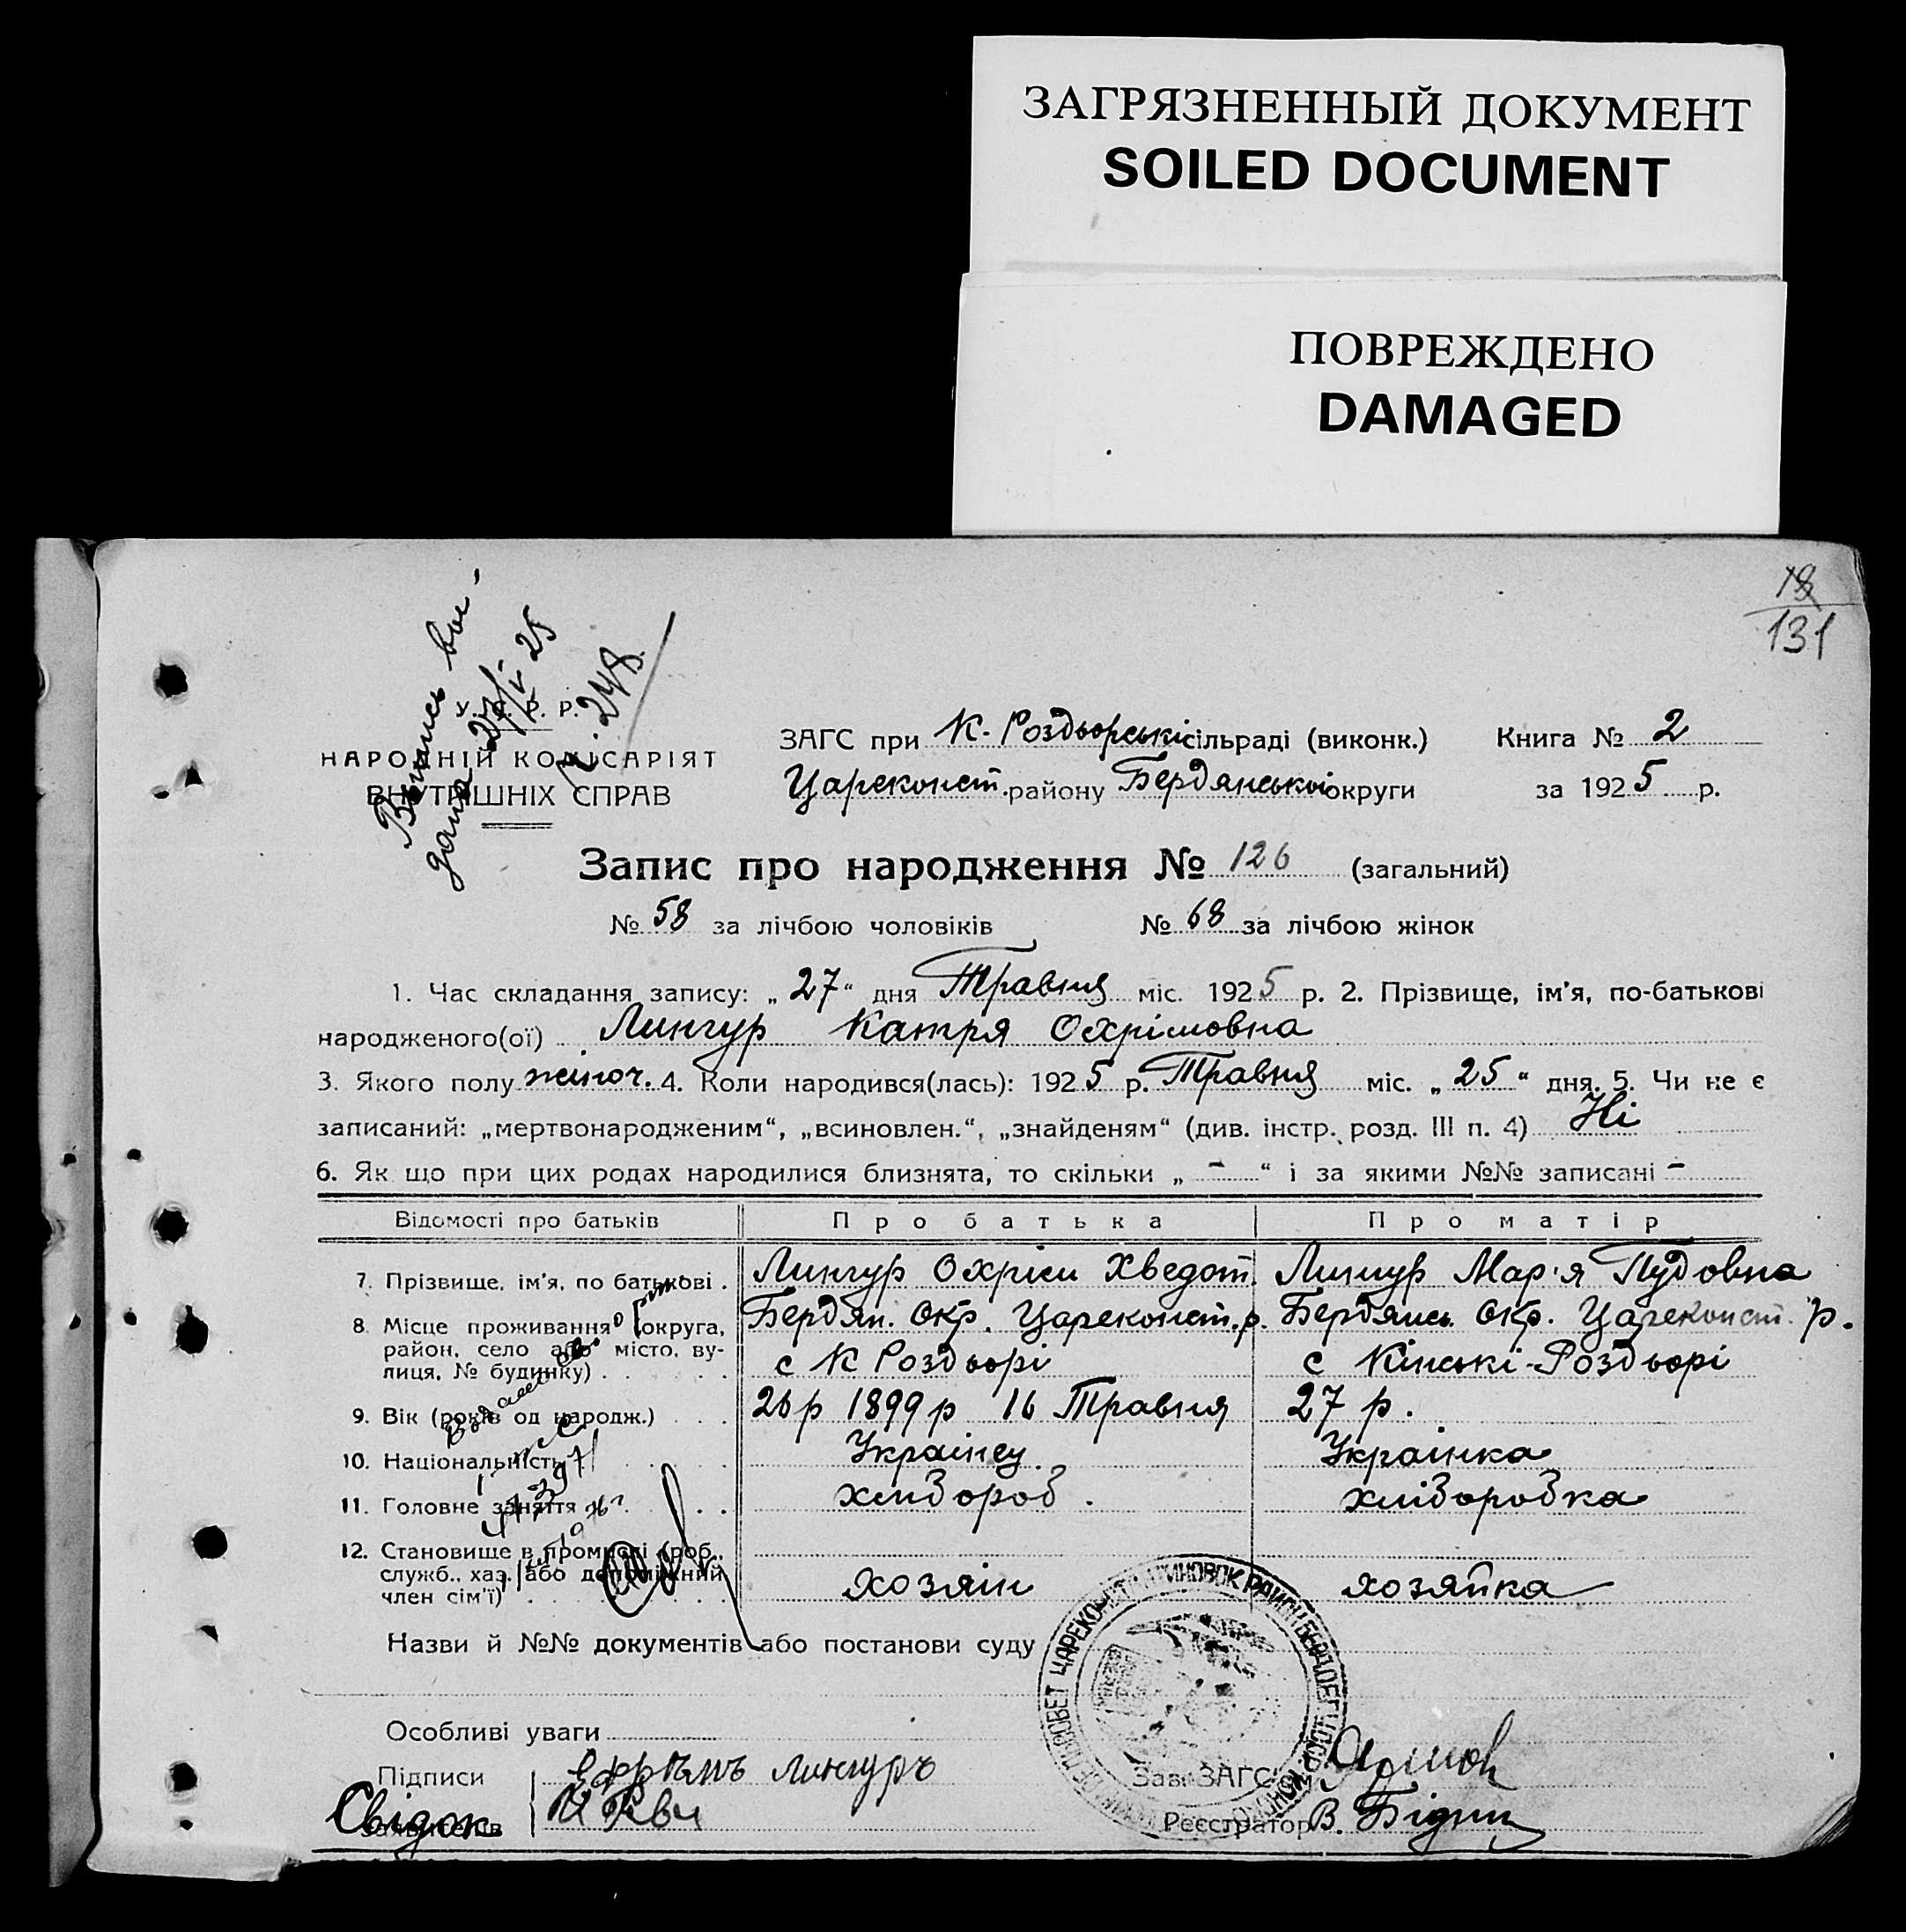 ЗАГРЯЗНЕННЫЙ ДОКУМЕНТ
SOILED DOCUMENT
ПОВРЕЖДЕНО
DAMAGED
18
131
Выпись вы-
дана 27/V 25
№ 248
У. С. Р. Р.
НАРОДНІЙ КОМІСАРІЯТ
ВНУТРІШНІХ СПРАВ
ЗАГС при К. Роздьорські сільраді (виконк.) Книга № 2
Цареконст. району Бердянської округи за 1925 р.
Запис про народження № 126 (загальний)
№ 58 за лічбою чоловіків № 68 за лічбою жінок
1. Час складання запису: „27“ дня Травня міс. 1925 р. 2. Прізвище, ім'я, по-батькові
народженого(ої) Лингур Катря Охрімовна
3. Якого полу жіноч. 4. Коли народився(лась): 1925 р. Травня міс. „25“ дня. 5. Чи не є
записаний: „мертвонародженим“, „всиновлен.“, „знайденям“ (див. інстр. розд. III п. 4) Ні
6. Як що при цих родах народилися близнята, то скільки „ - “ і за якими №№ записані -
Відомості про батьків Про батька Про матір
7. Прізвище, ім'я, по батькові . Лингур Охрім Хведот. Лингур Мар'я Пудовна
8. Місце проживання (округа, район, село або місто, вулиця, № будинку) . Бердян. Окр. Цареконст. р. Бердянсь. Окр. Цареконст. р.
с К Роздьорі с Кінські-Роздьорі
9. Вік (років од народж.) 26 р 1899 р 16 Травня 27 р.
10. Національність Українец Українка
11. Головне заняття хлібороб . хліборобка
12. Становище в промислі (роб., служб., хаз. або допоміжний член сім'ї) хозяін хозяйка
Назви й №№ документів або постанови суду
Особливі уваги
Підписи Ефрѣмъ Лингуръ Зав. ЗАГС'ом
Свідок
заявителів Реєстратор В.